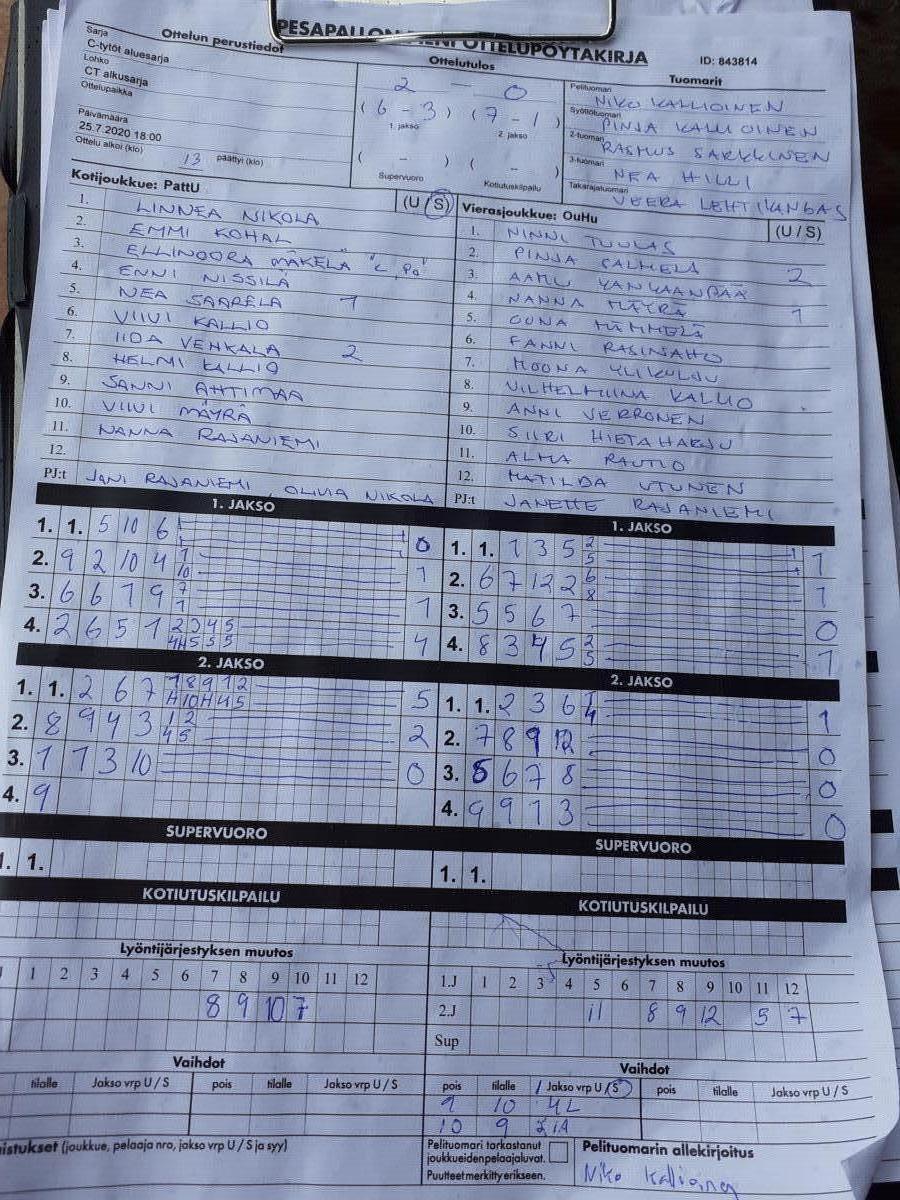 PESÄPALLON
OTTELUPÖYTÄKIRJA
ID: 843814
Ottelun perustiedot
Sarja
C-tytöt aluesarja
Lohko
CT alkusarja
Ottelupaikka
Päivämäärä
25.7.2020 18:00
Ottelu alkoi (klo) 13 päättyi (klo)
Ottelutulos
2 — 0
(6 - 3) (7 - 1)
1. jakso 2. jakso
( - ) ( - )
Supervuoro Kotiutuskilpailu
Tuomarit
Pelituomari NIKO KALLIOINEN
Syöttötuomari PINJA KALLIOINEN
2-tuomari RASMUS SARKKINEN
3-tuomari NEA HILLI
Takarajatuomari VEERA LEHTIKANGAS
Kotijoukkue: PattU (U / S)
1. LINNEA NIKOLA
2. EMMI KOHAL
3. ELLINOORA MÄKELÄ "L PO"
4. ENNI NISSILÄ
5. NEA SAARELA 1
6. VIIVI KALLIO
7. IIDA VENKALA 2
8. HELMI KALLIO
9. SANNI AHTIMAA
10. VIIVI MÄYRÄ
11. NANNA RAJANIEMI
12.
PJ:t JANI RAJANIEMI, OLIVIA NIKOLA
Vierasjoukkue: OuHu (U / S)
1. NINNI TUULAS
2. PINJA SALMELA
3. AAMU KANKAANPÄÄ 2
4. NANNA MÄYRÄ 1
5. OONA HÄMMELÄ
6. FANNI RASINAHO
7. MOONA YLIKULJU
8. VILHELMIINA KALLIO
9. ANNI VERRONEN
10. SIIRI HIETAHARJU
11. ALMA RAUTIO
12. MATILDA UTUNEN
PJ:t JANETTE RAJANIEMI
1. JAKSO
1. 1. 5 10 6 0
2. 9 2 10 4 1
3. 6 6 7 9 1
4. 2 6 5 1 2 3 4 5 4
1. JAKSO
1. 1. 1 3 5 2 5 1
2. 6 7 12 2 6 8 1
3. 5 5 6 7 0
4. 8 3 4 5 2 5 1
2. JAKSO
1. 1. 2 6 7 1 8 9 1 2 5
2. 8 9 4 3 1 2 4 5 2
3. 1 1 3 10 0
4. 9
2. JAKSO
1. 1. 2 3 6 1 4 1
2. 7 8 9 12 0
3. 5 6 7 8 0
4. 9 9 1 3 0
SUPERVUORO
1. 1.
SUPERVUORO
1. 1.
KOTIUTUSKILPAILU
KOTIUTUSKILPAILU
Lyöntijärjestyksen muutos
1 2 3 4 5 6 7 8 9 10 11 12
8 9 10 7
Lyöntijärjestyksen muutos
1.J 1 2 3 4 5 6 7 8 9 10 11 12
2.J 11 8 9 12 5 7
Sup
Vaihdot
tilalle Jakso vrp U / S pois tilalle Jakso vrp U / S
Vaihdot
pois tilalle Jakso vrp U / S pois tilalle Jakso vrp U / S
9 10 4L
10 9
(joukkue, pelaaja nro, jakso vrp U / S ja syy)
Pelituomari tarkastanut
joukkueiden pelaajaluvat.
Puutteet merkitty erikseen.
Pelituomarin allekirjoitus
Niko Kallioinen